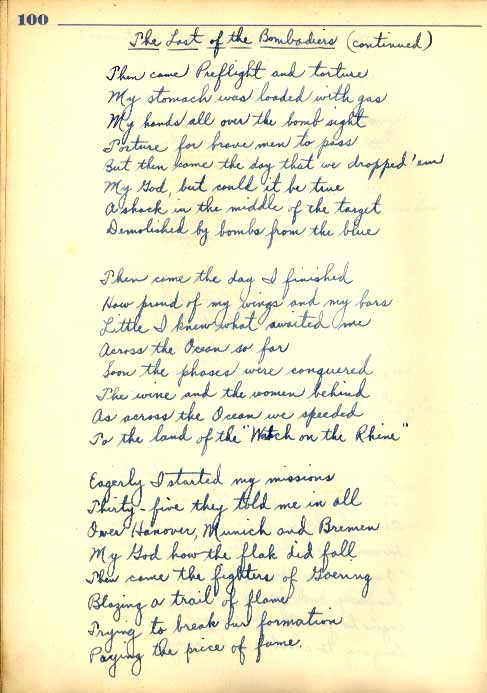 100
The Last of the Bombadiers (continued)
Then came Preflight and torture
My stomach was loaded with gas
My hands all over the bomb sight
Torture for brave men to pass
But then came the day that we dropped 'em
My God, but could it be true
A shack in the middle of the target
Demolished by bombs from the blue
Then came the day I finished
How proud of my wings and my bars
Little I knew what awaited me
Across the Ocean so far
Soon the phases were conquered
The wine and the women behind
As across the Ocean we speeded
To the land of the "Watch on the Rhine"
Eagerly I started my missions
Thirty-five they told me in all
Over Hanover, Munich and Bremen
My God how the flak did fall
Then came the fighters of Goering
Blazing a trail of flame
Trying to break our formation
Paying the price of fame.